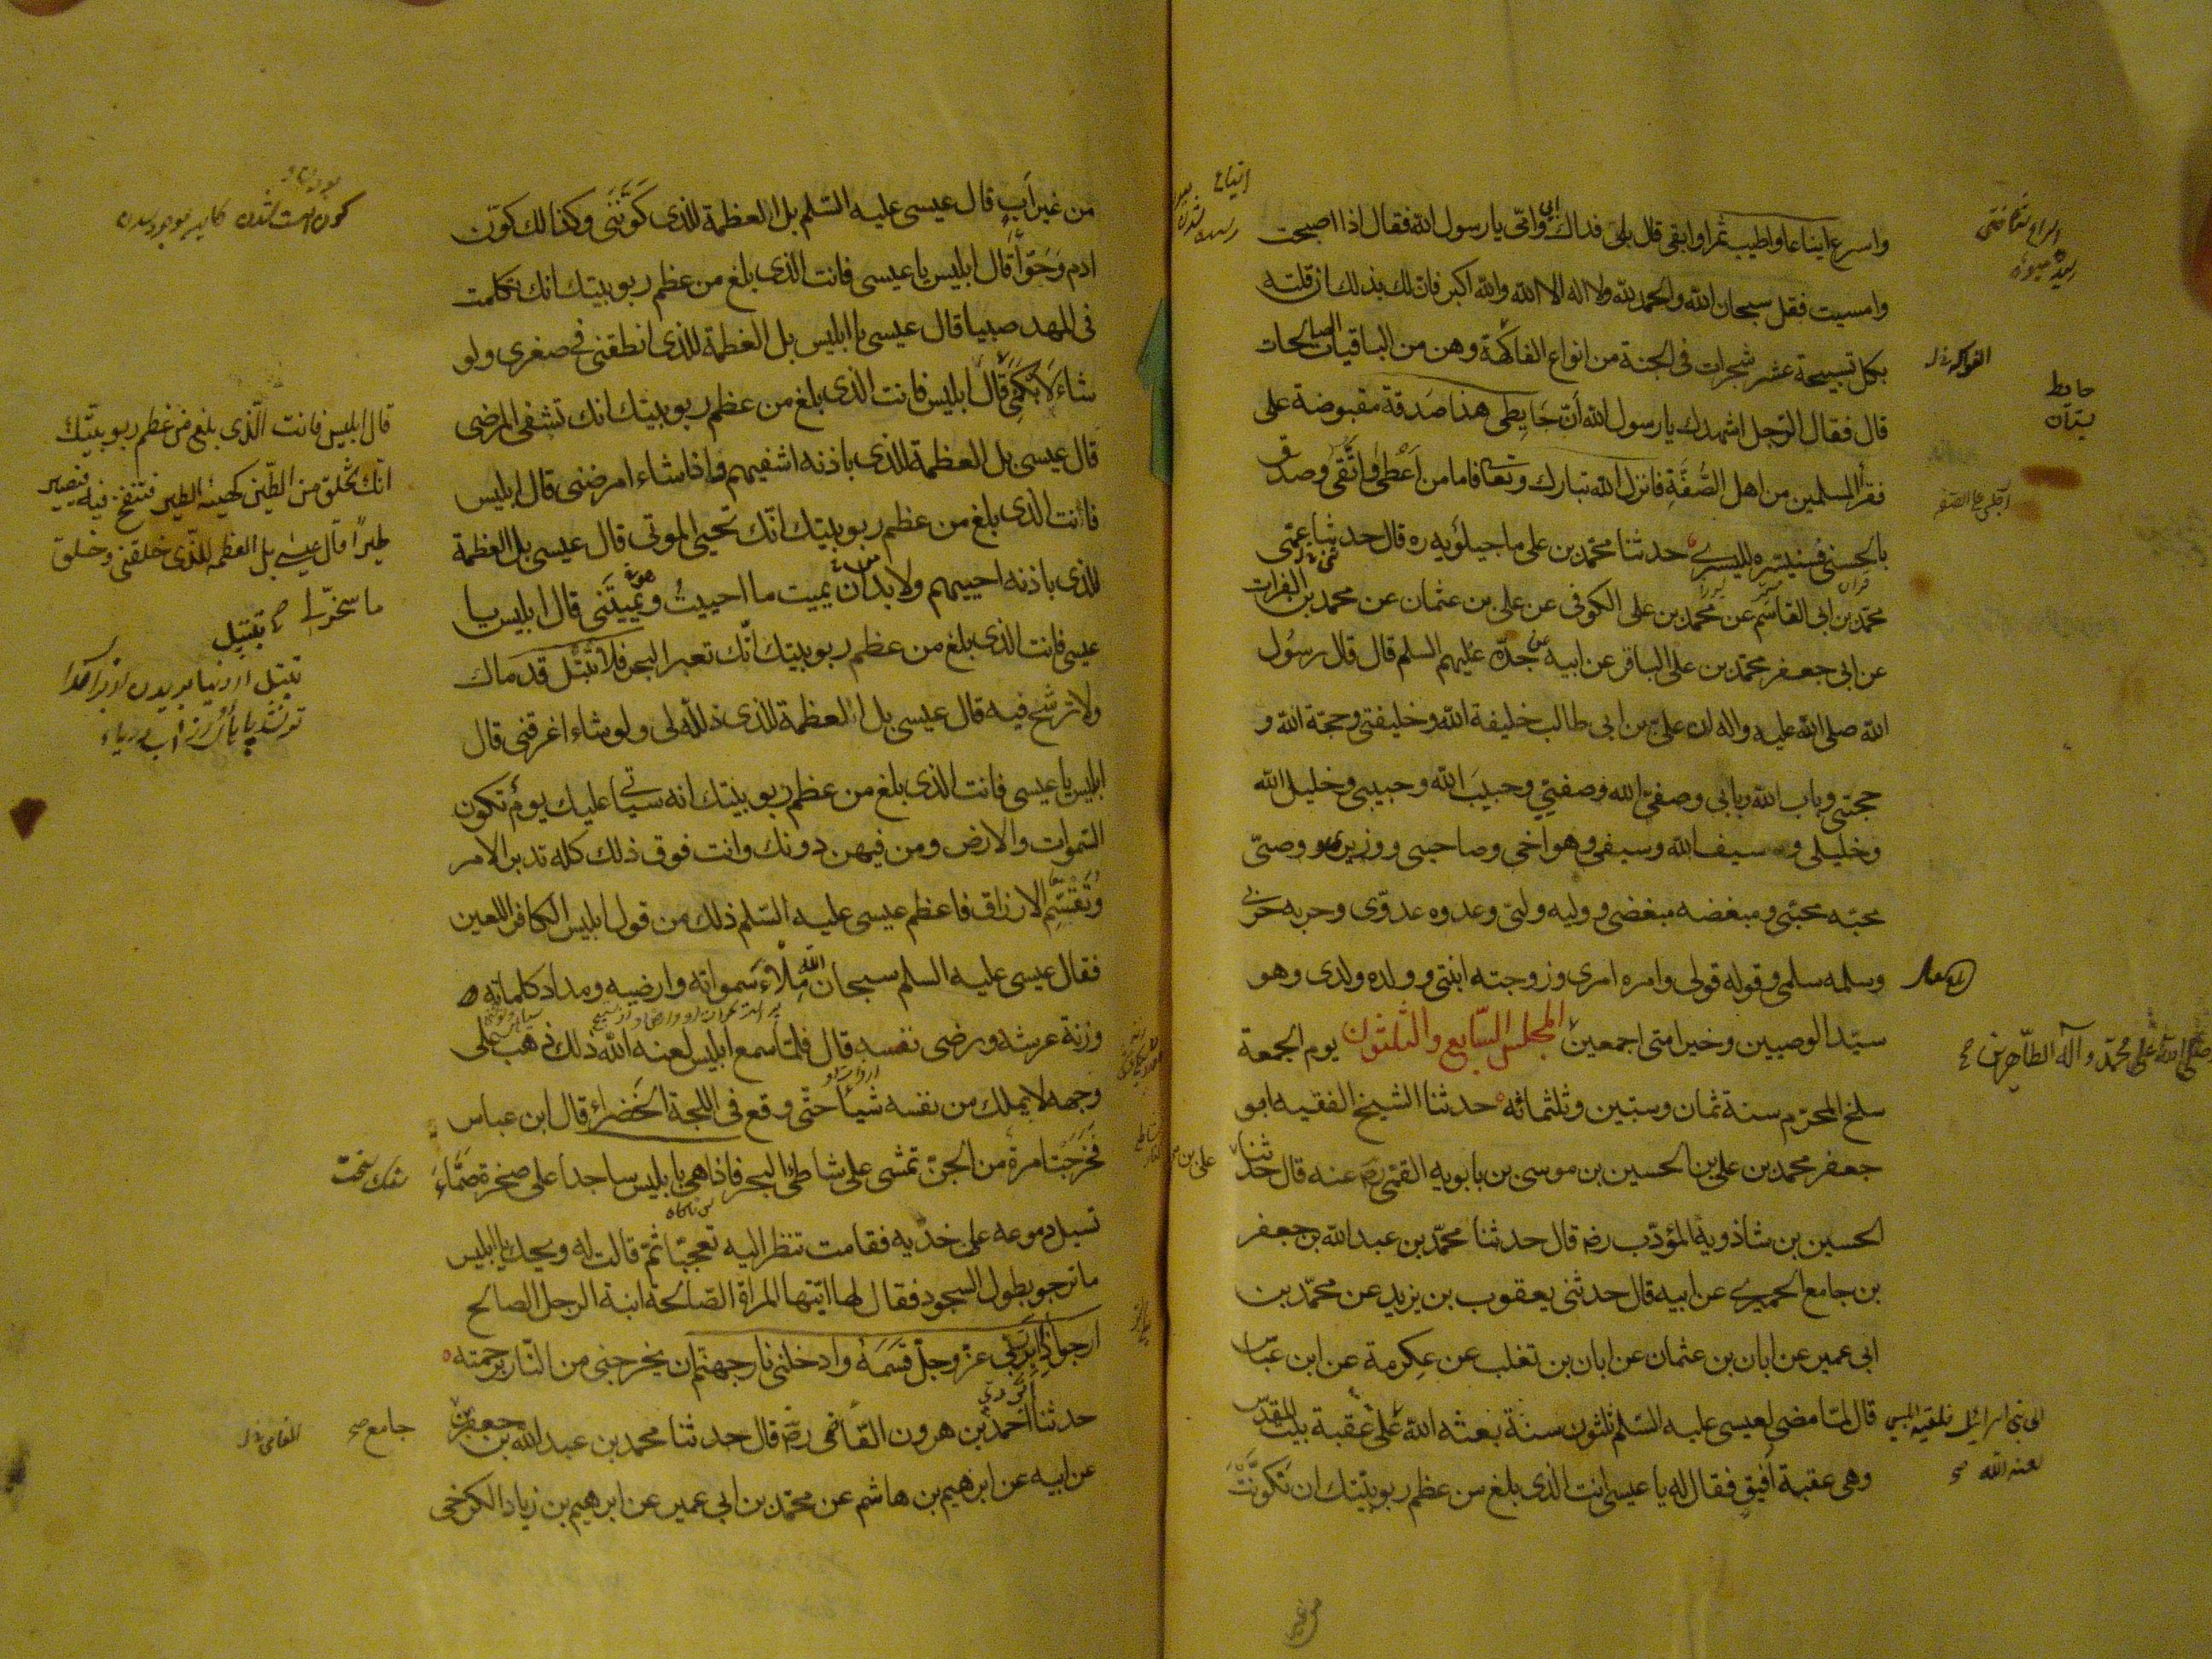 واسرع ايناعا واطيب ثمرا وابقى قال بلى فداك ابى وامّى يا رسول الله فقال اذا اصبحت
وامسيت فقل سبحان الله والحمد لله ولا اله الا الله والله اكبر فان لك بذلك ان قلته
بكل تسبيحة عشر شجرات فى الجنة من انواع الفاكهة وهن من الباقيات الصالحات
قال فقال الرّجل اشهدك يا رسول الله أنّ حايطى هذا صَدقة مقبوضة على
فقرأ المسلمين من اهل الصُّفَّةِ فانزل الله تبارك وتعا فاما من اَعْطى واتَّقى وصدق
بالحسنى فسنيسّره لليسرى حدثنا محمّد بن على ماجيلويه ره قال حدثنا عمّى
محمّد بن ابى القاسم عن محمد بن على الكوفى عن على بن عثمان عن محمد بن الفرات
عن ابى جعفر محمّد بن على الباقر عن ابيه عن جدّه عليهم السلم قال قال رسول
الله صلى الله عليه واله ان علىّ بن ابى طالب خليفة الله وخليفتى وحجة الله و
حجتى وباب الله وبابى وصفىّ الله وصفيى وحبيبَ الله وحبيبى وخليل الله
وخليلى و سيف الله وسيفى وهو اخى وصاحبى ووزيرى ووصيّى
محبّه محبّى ومبغضه مبغضى ووليه وليّى وعدوه عدوّى وحربه حربى
وسلمه سلمى وقوله قولى وامره امرى وزوجته ابنتى وولده ولدى وهو
سيّد الوصيين وخير امتى اجمعين المجلس السّابع والثلثون يوم الجمعة
سلخ المحرّم سنة ثمان وستين وثلثمائه حدثنا الشيخ الفقيه ابو
جعفر محمد بن على بن الحسين بن موسى بن بابويه القمّى رضى عنه قال حدثنا
الحسين بن شاذويه المؤدّب رض قال حدثنا محمّد بن عبد الله بن جعفر
بن جامع الحميرى عن ابيه قال حدثنى يعقوب بن يزيد عن محمّد بن
ابى عمير عن ابان بن عثمان عن ابان بن تغلب عن عِكرمة عن ابن عبّاس
قال لمّا مضى لعيسى عليه السّلم ثلثون سنة بعثه الله على عقبة بيت المقدس
وهى عقبة اَفيق فقال له يا عيسى انت الذى بلغ من عظم ربوبيّتك ان تكوّنت
حايط
بستان
وصلّى الله على محمّد وآله الطّاهرين صح
الى بنى اسرائيل فلقيه ابليس
لعنه الله صح
من غير اَب قال عيسى عليه السّلم بل العظمة للذى كَوَّنَنى وكذلك كوّن
ادم وَحَوّا قال ابليس يا عيسى فانت الذى بلغ من عظم ربوبيتك انك تكلمت
فى المهد صبيا قال عيسى يا ابليس بل العظمة للذى انطقنى فى صغرى ولو
شاء لَاَبكَمَنى قال ابليس فانت الذى بلغ من عظم ربوبيتك انك تشفى المرضى
قال عيسى بل العظمة للذى باذنه اشفيهم واذا شاء امرضنى قال ابليس
فانت الذى بلغ من عظم ربوبيتك انّك تحيى الموتى قال عيسى بل العظمة
للذى باذنه احييهم ولا بد ان يميت ما احييتُ ويُميتَنى قال ابليس يا
عيسى فانت الذى بلغ من عظم ربوبيتك انّك تعبر البحر فلا تبتل قدماك
ولا ترسّخ فيه قال عيسى بل العظمة للذى ذلّله لى ولو شاء اغرقنى قال
ابليس يا عيسى فانت الذى بلغ من عظم ربوبيتك انه سياتى عليك يوم تكون
السّموات والارض ومن فيهن دونك وانت فوق ذلك كله تدبر الامر
وتُقسّم الارزاق فاعظم عيسى عليه السّلم ذلك من قول ابليس الكافر اللعين
فقال عيسى عليه السلم سبحان الله مِلْاءَ سَمواته وارضيه ومداد كلماته
وزنة عرشه ورضى نفسه قال فلمّا سمع ابليس لعنه الله ذلك ذهب على
وجهه لا يملك من نفسه شيأ حتّى وقع فى اللجة الخضراء قال ابن عباس
فخرجت امرة من الجنّ تمشى على شاطئ البحر فاذا هى بابليس ساجدا على صخرة صمّاءَ
تسيل دموعه على خدّيه فقامت تنظر اليه تعجبّا ثمّ قالت له ويحك يا ابليس
ما ترجو بطول السجود فقال لها ايّتها المراة الصّالحة ابنة الرجل الصالح
ارجو اذا اَبَرّ ربى عزّ وجلّ قَسَمَهُ وادخلنى نار جهنّم ان يخرجنى من النّار برحمته
حدثنا احمد بن هرون القاضى رض قال حدثنا محمد بن عبد الله بن جعفر بن
عن ابيه عن ابرهيم بن هاشم عن محمّد بن ابى عمير عن ابرهيم بن زياد الكرخى
قال ابليس فانت الّذى بلغ من عظم ربوبيّتك
انّك تخلق من الطّين كهيئة الطير فتنفخ فيه فيصير
طيرًا قال عيسى بل العظمه للذّى خلقنى وخلق
ما سخّر لى صح
جامع صح